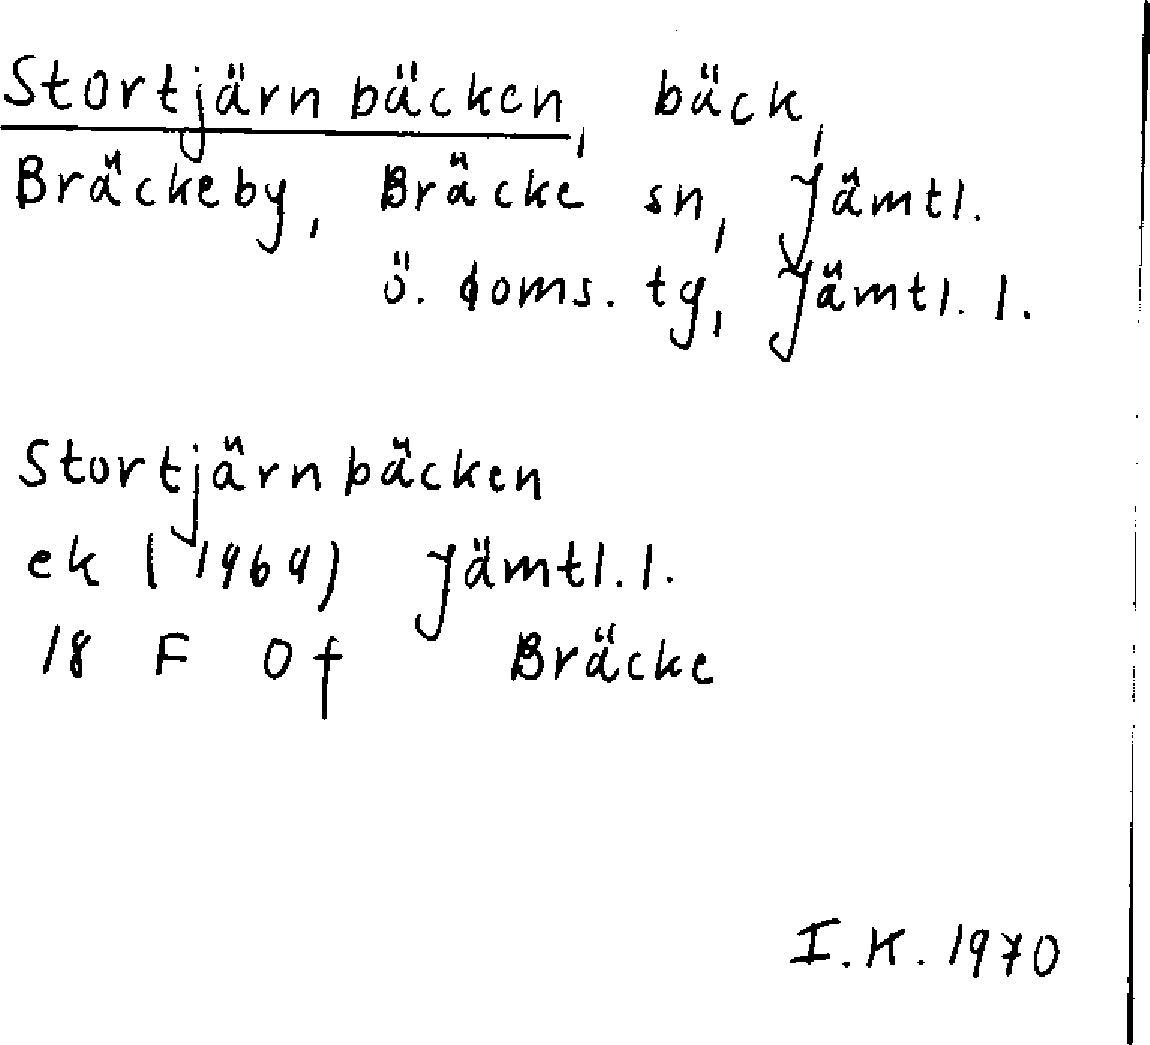 Stortjärnbäcken, bäck,
Bräckeby, Bräcke sn, Jämtl.
ö. doms. tg, Jämtl. l.
Stortjärnbäcken
ek (1969) Jämtl. l.
18 F 0 f Bräcke
I.K. 1970